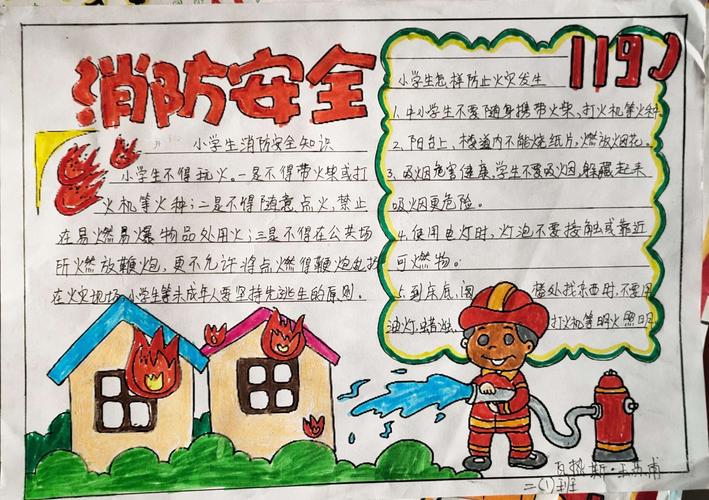 消防安全
小学生消防安全知识
小学生不得玩火。一是不得带火柴或打
火机等火种；二是不得随意点火，禁止
在易燃易爆物品处用火；三是不得在公共场
所燃放鞭炮，更不允许将点燃得鞭炮乱
在火灾现场，小学生等未成年人要坚持先逃生的原则。
119
小学生怎样防止火灾发生
1. 中小学生不要随身携带火柴、打火机等火种
2. 阳台上、楼道内不能烧纸片，燃放烟花。
3. 吸烟危害健康，学生不要吸烟，躲藏起来
吸烟更危险。
4. 使用电灯时，灯泡不要接触或靠近
可燃物。
5. 到床底、阁 处找东西时，不要用
油灯、蜡烛、 打火机等明火照明
斯·玉苏甫
二(1)班